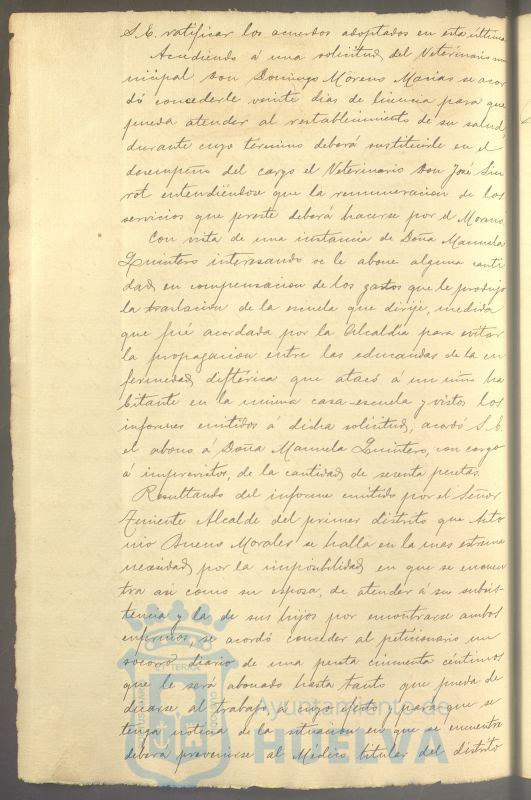 S. E. ratificar los acuerdos adoptados en esta última
Accediendo á una solicitud del Veterinario mu
nicipal Don Domingo Moreno Marías se acor
dó concederle veinte dias de licencia para que
pueda atender al restablecimiento de su salud,
durante cuyo término deberá sustituirle en el
desempeño del cargo el Veterinario Don José Sin
rot entendiéndose que la remuneracion de los
servicios que preste deberá hacerse por el Moreno
Con vista de una instancia de Doña Manuela
Quintero interesando se le abone alguna canti
dad en compensacion de los gastos que le produjo
la traslacion de la escuela que dirije, medida
que fué acordada por la Alcaldía para evitar
la propagacion entre las educandas de la en
fermedad diftérica que atacó á un niño ha
bitante en la misma casa-escuela y vistos los
informes emitidos á dicha solicitud, acordó S. E.
el abono á Doña Manuela Quintero, con cargo
á imprevistos, de la cantidad de sesenta pesetas
Resultando del informe emitido por el Señor
Teniente Alcalde del primer distrito que Anto
nio Bueno Morales se halla en la mas estrema
necesidad por la imposibilidad en que se encuen
tra asi como su esposa, de atender á su subsis
tencia y la de sus hijos por encontrarse ambos
enfermos, se acordó conceder al peticionario un
socorro diario de una peseta cincuenta céntimos
que le será abonado hasta tanto que pueda de
dicarse al trabajo á cuyo efecto y para que se
tenga noticia de la situacion en que se encuentra
deberá prevenirse al Médico titular del distrito
Ayuntamiento de
HUELVA